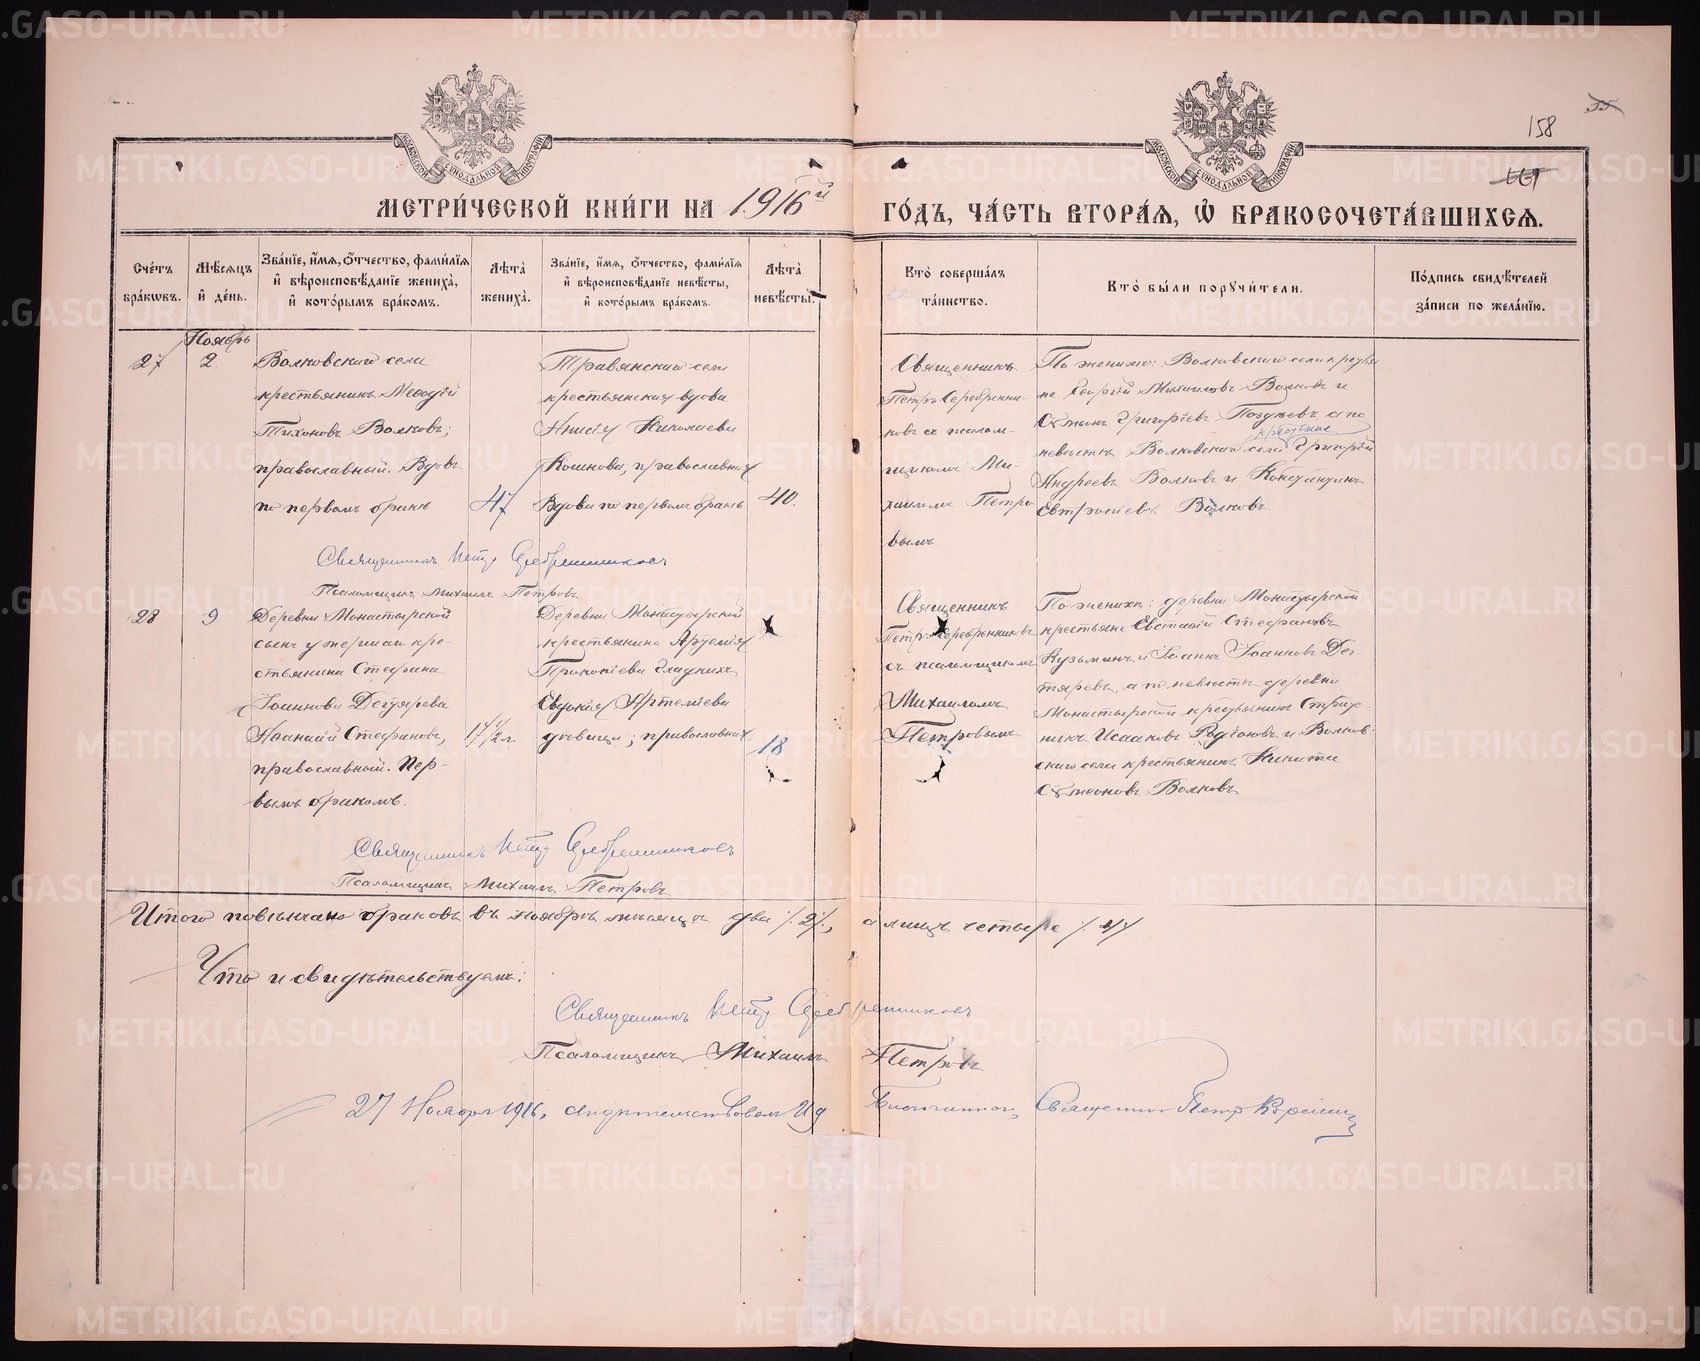 158
МЕТРИ́ЧЕСКОЙ КНИ́ГИ НА 1916й ГО́ДЪ, ЧА́СТЬ ВТОРА́Я, Ѡ БРАКОСОЧЕТА́ВШИХСЯ.
Сче́тъ бра́ковъ.
Мѣ́сяцъ и де́нь.
Зва́нїе, и́мя, о́тчество, фами́лїя и вѣроисповѣ́данїе жениха̀, и кото́рымъ бра́комъ.
Лѣ́та жениха̀.
Зва́нїе, и́мя, о́тчество, фами́лїя и вѣроисповѣ́данїе невѣ́сты, и кото́рымъ бра́комъ.
Лѣ́та невѣ́сты.
Кто̀ соверша́лъ та́инство.
Кто̀ бы́ли поручи́тели.
По́дпись свидѣ́телей за́писи по жела́нїю.
Ноябрь
27
2.
Волковскаго села
крестьянинъ Меѳодій
Тихоновъ Волковъ;
православный. Вдовъ
по первомъ бракѣ
47
Травянскаго села
крестьянская вдова
Анисія Николаева
Кошкова, православная
Вдова по первомъ бракѣ
40.
Священникъ
Петръ Серебренни-
ковъ съ псалом-
щикомъ Ми-
хаиломъ Петро
вымъ
По женихѣ: Волковскаго села крестья
не Георгій Михаиловъ Волковъ и
Сѵмеонъ Григоріевъ, а по
крестьяне
невѣстѣ Волковскаго села Григорій
Андреевъ Волковъ и Константинъ
Евтропіевъ Волковъ
Священникъ Петръ Серебренниковъ
Псаломщикъ Михаилъ Петровъ
28
9
Деревни Монастырской
сынъ умершаго кре-
стьянина Стефана
Іоаннова Дегтярева
Аѳанасій Стефановъ,
православный. Пер-
вымъ бракомъ.
17 1/2 л.
Деревни Монастырской
крестьянина Артемія
Прокопіева Гладкихъ
Евдокія Артеміева
дѣвица; православная
18
Священникъ
Петръ Серебренниковъ
съ псаломщикомъ
Михаиломъ
Петровымъ
По женихѣ: деревни Монастырской
крестьяне Евстаѳій Стефановъ
Кузьминъ и Іоаннъ Іоанновъ Дег-
тяревъ, а по невѣстѣ деревни
Монастырской крестьянинъ
Исааковъ Родіоновъ и Волков-
скаго села крестьянинъ Никита
Сѵмеоновъ Волковъ
Священникъ Петръ Серебренниковъ
Псаломщикъ Михаилъ Петровъ
Итого повѣнчано браковъ въ ноябрѣ мѣсяцѣ два /. 2 /., а лицъ четыре /. 4 /
Что и свидѣтельствуемъ:
Священникъ Петръ Серебренниковъ
Псаломщикъ Михаилъ Петровъ
27 Ноября 1916, Благочинного, Священникъ Петръ
METRIKI.GASO-URAL.RU